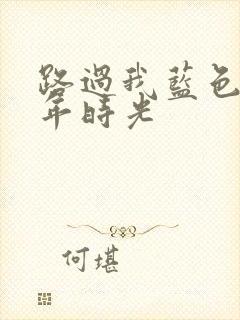 路過我藍色
年時光
何堪